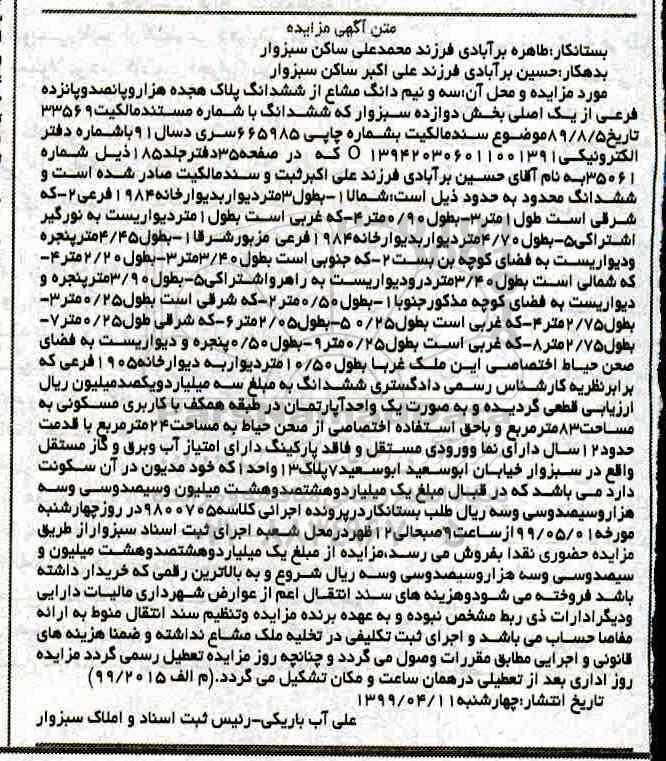 متن آگهی مزایده
بستانکار:طاهره برآبادی فرزند محمدعلی ساکن سبزوار
بدهکار:حسین برآبادی فرزند علی اکبر ساکن سبزوار
مورد مزایده و محل آن:سه و نیم دانگ مشاع از ششدانگ پلاک هجده هزاروپانصدوپانزده
فرعی از یک اصلی بخش دوازده سبزوار که ششدانگ با شماره مستندمالکیت۳۳۵۶۹
تاریخ۸۹/۸/۵موضوع سندمالکیت بشماره چاپی ۶۶۵۹۸۵سری دسال۹۱باشماره دفتر
الکترونیکی۱۳۹۴۲۰۳۰۶۰۱۱۰۰۱۳۹۱ O که در صفحه۳۵دفترجلد۱۸۵ذیل شماره
۳۵۰۶۱به نام آقای حسین برآبادی فرزند علی اکبرثبت و سندمالکیت صادر شده است و
ششدانگ محدود به حدود ذیل است:شمالا۱-بطول۳متردیواربدیوارخانه۱۹۸۴فرعی۲-که
شرقی است طول۱متر۳-بطول۰/۹۰متر۴-که غربی است بطول۱متردیواریست به نورگیر
اشتراکی۵-بطول۴/۷۰متردیواربدیوارخانه۱۹۸۴فرعی مزبورشرقا۱-بطول۴/۴۵مترپنجره
ودیواریست به فضای کوچه بن بست۲-که جنوبی است بطول۳/۴۰متر۳-بطول۲/۲۰متر۴-
که شمالی است بطول۳/۴۰متردرودیواریست به راهرواشتراکی۵-بطول۳/۹۰مترپنجره و
دیواریست به فضای کوچه مذکورجنوبا۱-بطول۰/۵۰متر۲-که شرقی است بطول۰/۲۵متر۳-
بطول۲/۷۵متر۴-که غربی است بطول۰/۲۵ ۵-بطول۲/۰۵متر۶-که شرقی طول۰/۲۵متر۷-
بطول۲/۷۵متر۸-که غربی است بطول۰/۲۵متر۹-بطول۰/۵۰پنجره و دیواریست به فضای
صحن حیاط اختصاصی این ملک غربا بطول۱۰/۵۰متردیواربه دیوارخانه۱۹۰۵فرعی که
برابرنظریه کارشناس رسمی دادگستری ششدانگ به مبلغ سه میلیاردویکصدمیلیون ریال
ارزیابی قطعی گردیده و به صورت یک واحدآپارتمان در طبقه همکف با کاربری مسکونی به
مساحت۸۳مترمربع و باحق استفاده اختصاصی از صحن حیاط به مساحت۲۴مترمربع با قدمت
حدود۱۲سال دارای نما وورودی مستقل و فاقد پارکینگ دارای امتیاز آب وبرق و گاز مستقل
واقع در سبزوار خیابان ابوسعید ابوسعید۷پلاک۱۳واحد۱که خود مدیون در آن سکونت
دارد می باشد که در قبال مبلغ یک میلیاردوهشتصدوهشت میلیون وسیصدوسی وسه
هزاروسیصدوسی وسه ریال طلب بستانکاردرپرونده اجرائی کلاسه۹۸۰۰۷۰۵در روزچهارشنبه
مورخه۹۹/۰۵/۰۱ازساعت۹صبحالی۱۲ظهردرمحل شعبه اجرای ثبت اسناد سبزواراز طریق
مزایده حضوری نقدا بفروش می رسد،مزایده از مبلغ یک میلیاردوهشتصدوهشت میلیون و
سیصدوسی وسه هزاروسیصدوسی وسه ریال شروع و به بالاترین رقمی که خریدار داشته
باشد فروخته می شودوهزینه های سند انتقال اعم از عوارض شهرداری مالیات دارایی
ودیگرادارات ذی ربط مشخص نبوده و به عهده برنده مزایده وتنظیم سند انتقال منوط به ارائه
مفاصا حساب می باشد و اجرای ثبت تکلیفی در تخلیه ملک مشاع نداشته و ضمنا هزینه های
قانونی و اجرایی مطابق مقررات وصول می گردد و چنانچه روز مزایده تعطیل رسمی گردد مزایده
روز اداری بعد از تعطیلی درهمان ساعت و مکان تشکیل می گردد.(م الف ۹۹/۲۰۱۵)
تاریخ انتشار:چهارشنبه۱۳۹۹/۰۴/۱۱
علی آب باریکی-رئیس ثبت اسناد و املاک سبزوار